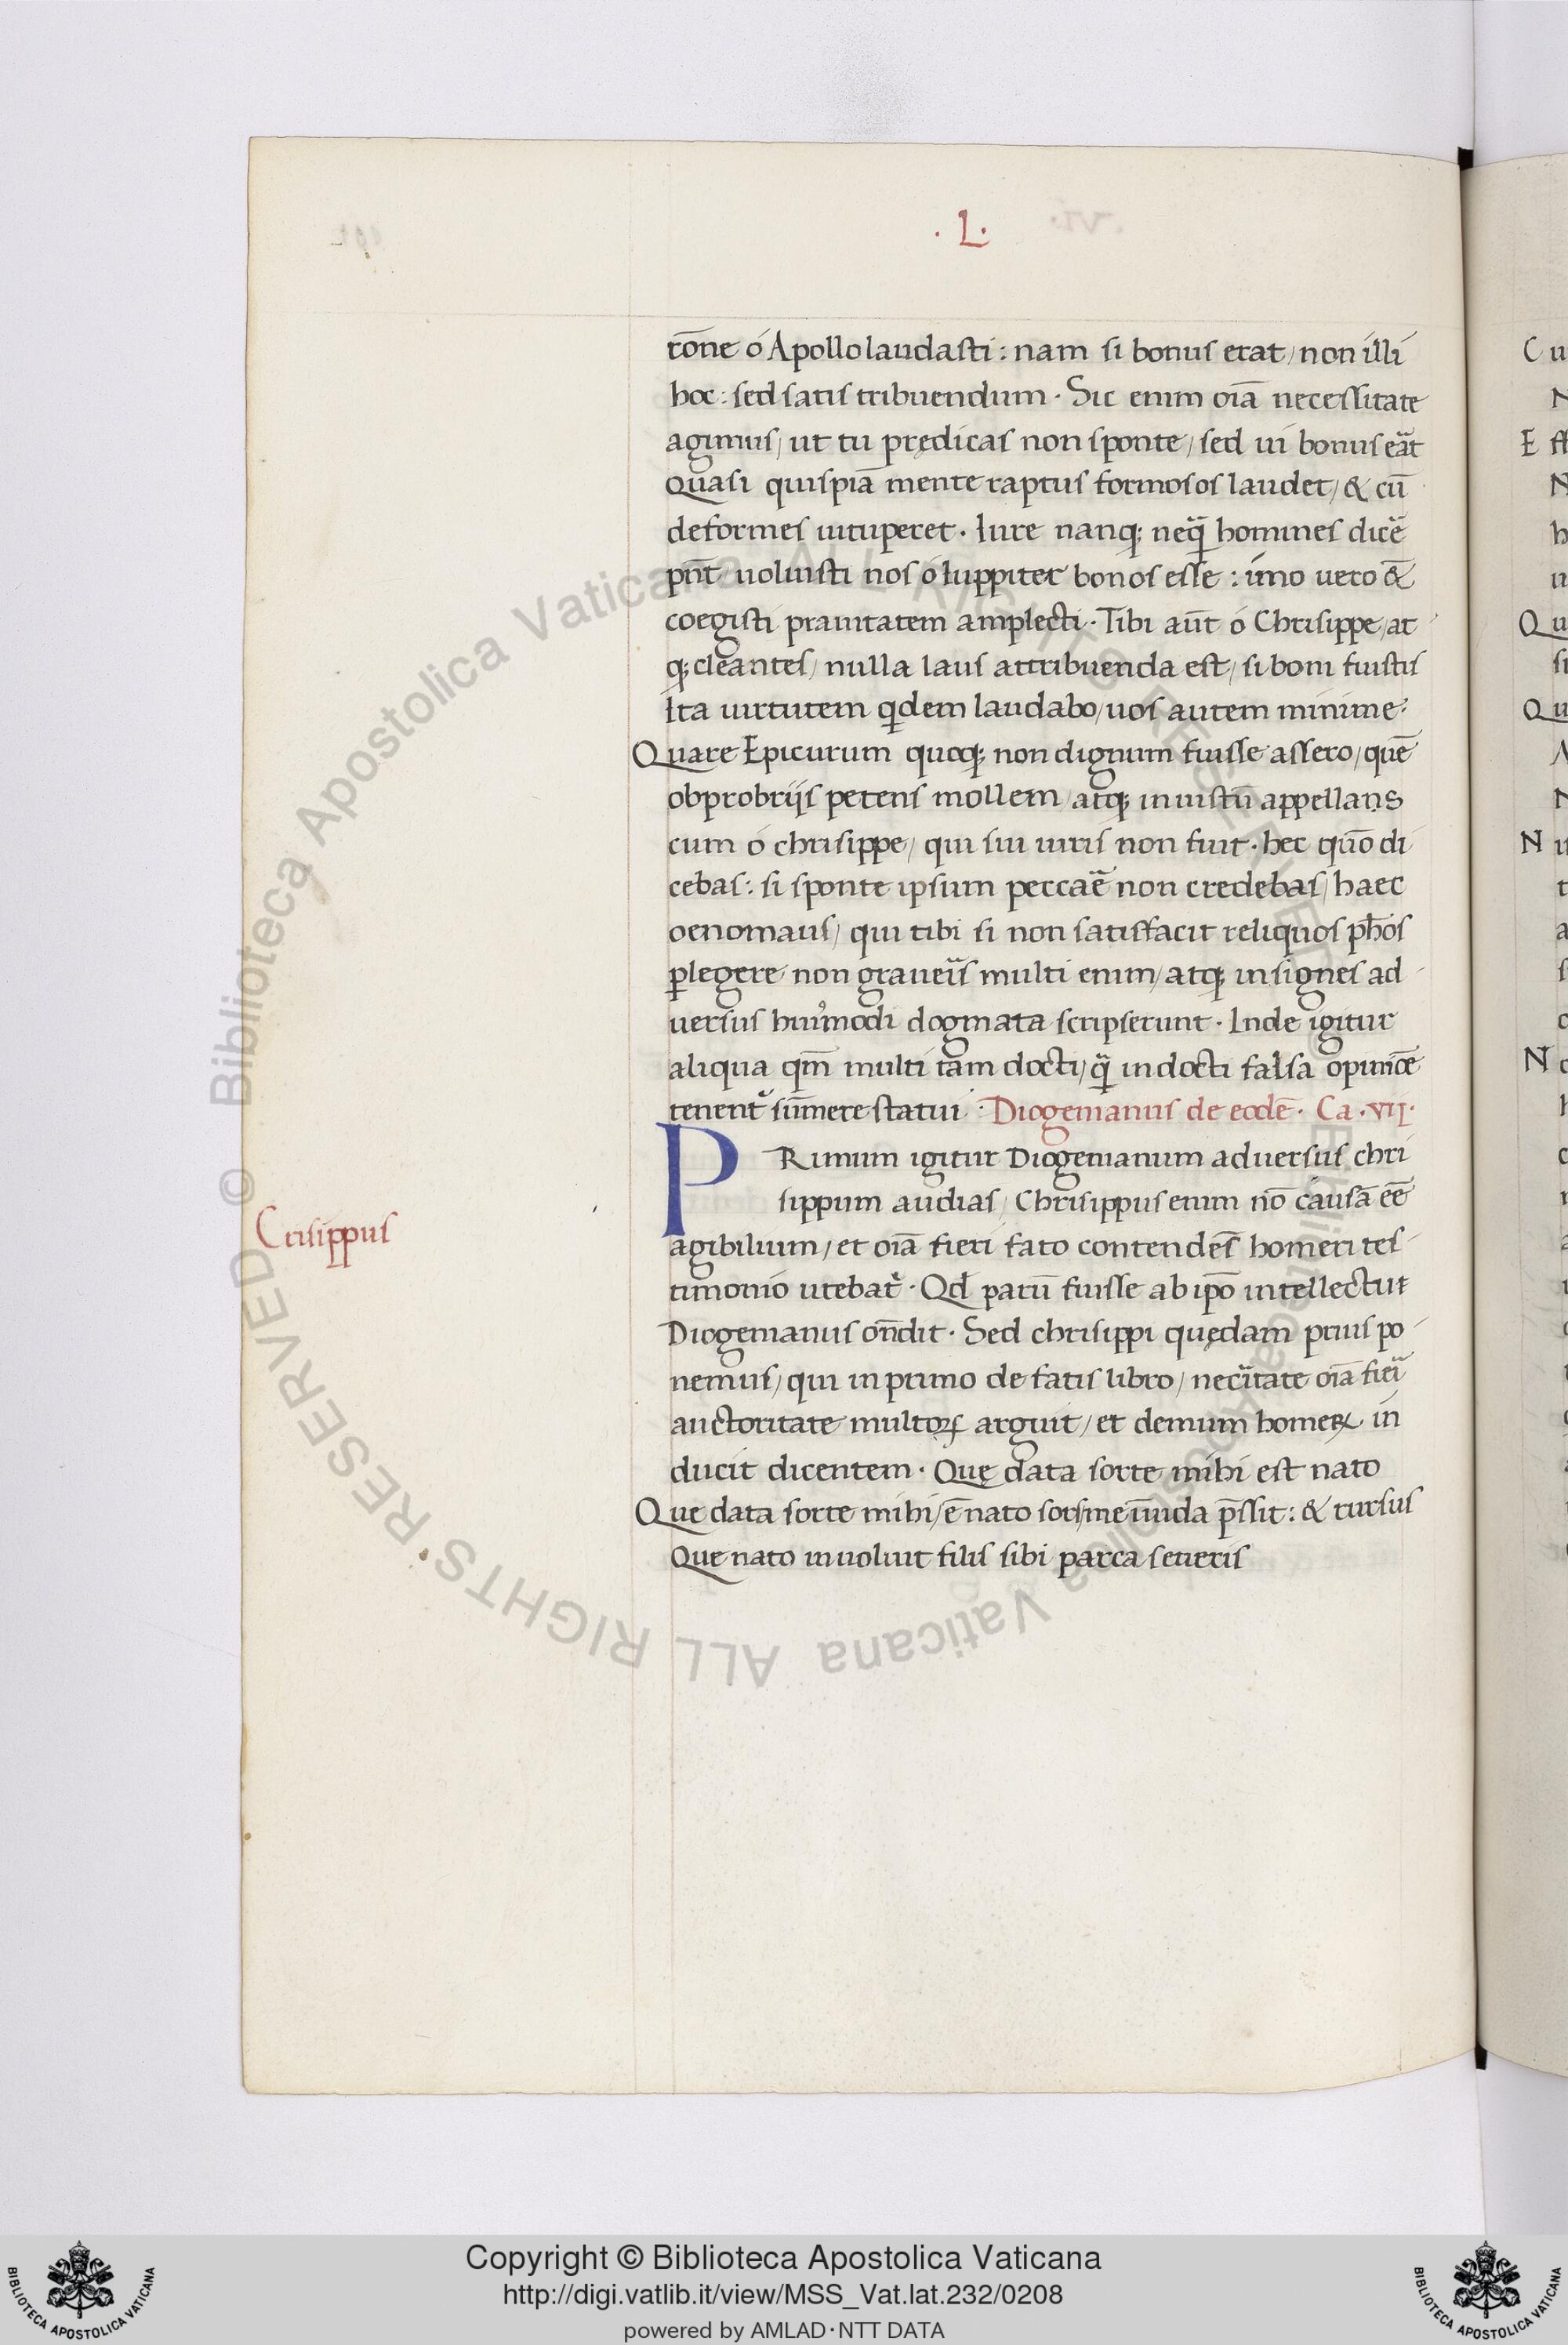 . L .
rōne ó Apollo laudasti : nam si bonus erat / non illi
hoc : sed satis tribuendum · Sic enim oīa necessitate
agimus / ut tu prędicas non sponte / sed ui bonus erat
Quasi quispiā mente raptus formosos laudet / & cū
deformes uituperet · Iure nanq; neq̄ homines dicē
pn̄t / uoluisti nos ó Iuppiter bonos esse : imo uero &
coegisti prauitatem amplecti · Tibi aūt ó Chrisippe / at
q; cleantes / nulla laus attribuenda est / si boni fuistis
Ita uirtutem qdem laudabo / uos autem minime ·
Quare Epicurum quoq; non dignum fuisse assero / quē
obprobrijs petens mollem / atq; iniustū appellans
cum ó chrisippe / qui sui iuris non fuit · hec quō di
cebas : si sponte ipsum peccaē non credebas / haec
oenomaus / qui tibi si non satisfacit reliquos ph̄os
ꝑlegere non graueris multi enim / atq; insignes ad
uersus huiꝰmodi dogmata scripserunt · Inde igitur
aliqua qm̄ multi tam docti / q̄ indocti falsa opinioē
tenent̄ sūmere statui · Diogemanus de eodē · Ca · VII ·
PRimum igitur Diogemanum aduersus chri
sippum audias / Chrisippus enim nō causā eē
Crisippus
agibilium / et oīa fieri fato contendēs homeri tes
timonio utebat̄ · Qd parū fuisse ab ip̄o intellectus
Diogemanus on̄dit · Sed chrisippi quędam prius po
nemus / qui in primo de fatis libro / necitate oīa fieri
auctoritate multoꝝ arguit / et demum homeꝝ in
ducit dicentem · Quę data sorte mihi est nato
Que data sorte mihi / ē nato sors me īuida p̄ssit : & rursus
Que nato inuoluit filis sibi parca seueris
Copyright © Biblioteca Apostolica Vaticana
http://digi.vatlib.it/view/MSS_Vat.lat.232/0208
powered by AMLAD·NTT DATA